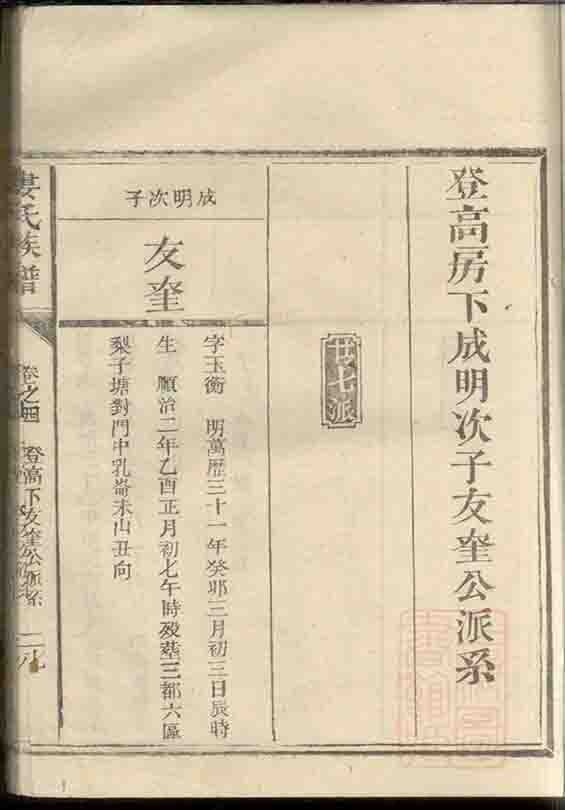 登高房下成明次子友奎公派系
廿七派
成明次子
友奎
字玉衡　明萬歷三十一年癸卯三月初三日辰時
生　順治二年乙酉正月初七午時歿塟三都六區
梨子塘對門中乳崙未山丑向
婁氏族譜
卷之四　登高下友奎公派系